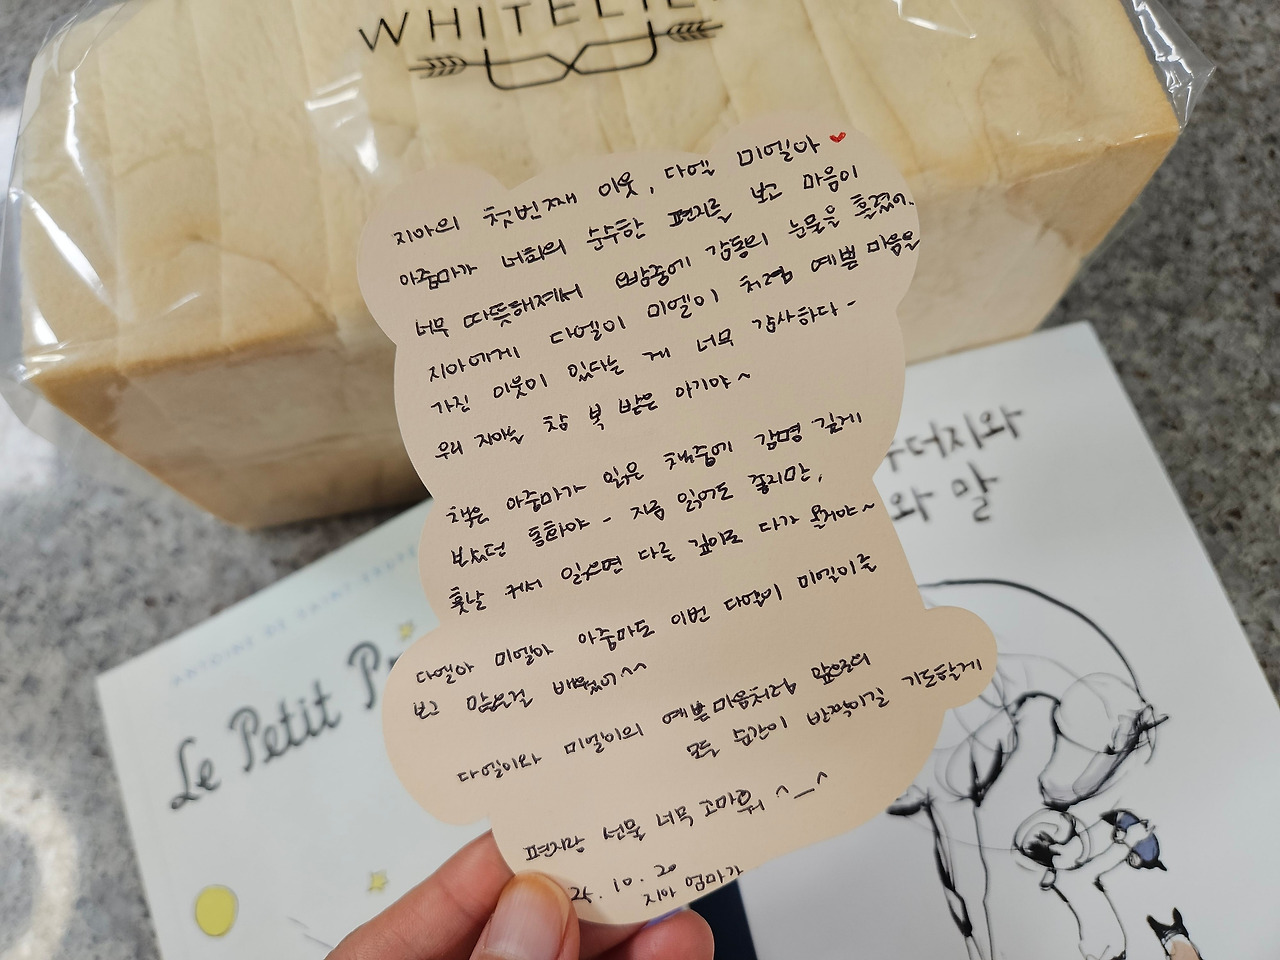 WHITELIE
지아의 첫번째 이웃, 다엘 미엘아 ♥
아줌마가 너희의 순수한 편지를 보고 마음이
너무 따뜻해져서 밤중에 감동의 눈물을 흘렸어.
지아에게 다엘이 미엘이 처럼 예쁜 마음을
가진 이웃이 있다는 게 너무 감사하다 -
우리 지아는 참 복 받은 아기야 ~
책은 아줌마가 읽은 책중에 감명 깊게
보았던 동화야 - 지금 읽어도 좋지만,
훗날 커서 읽으면 다른 깊이로 다가 올거야 ~
다엘아 미엘아 아줌마도 이번 다엘이 미엘이를
보고 많은걸 배웠어 ^^
다엘이와 미엘이의 예쁜마음처럼 앞으로의
모든 순간이 반짝이길 기도할게
편지랑 선물 너무 고마워 ^_^
24. 10. 20
지아 엄마가
Le Petit Pr
더지와
와 말